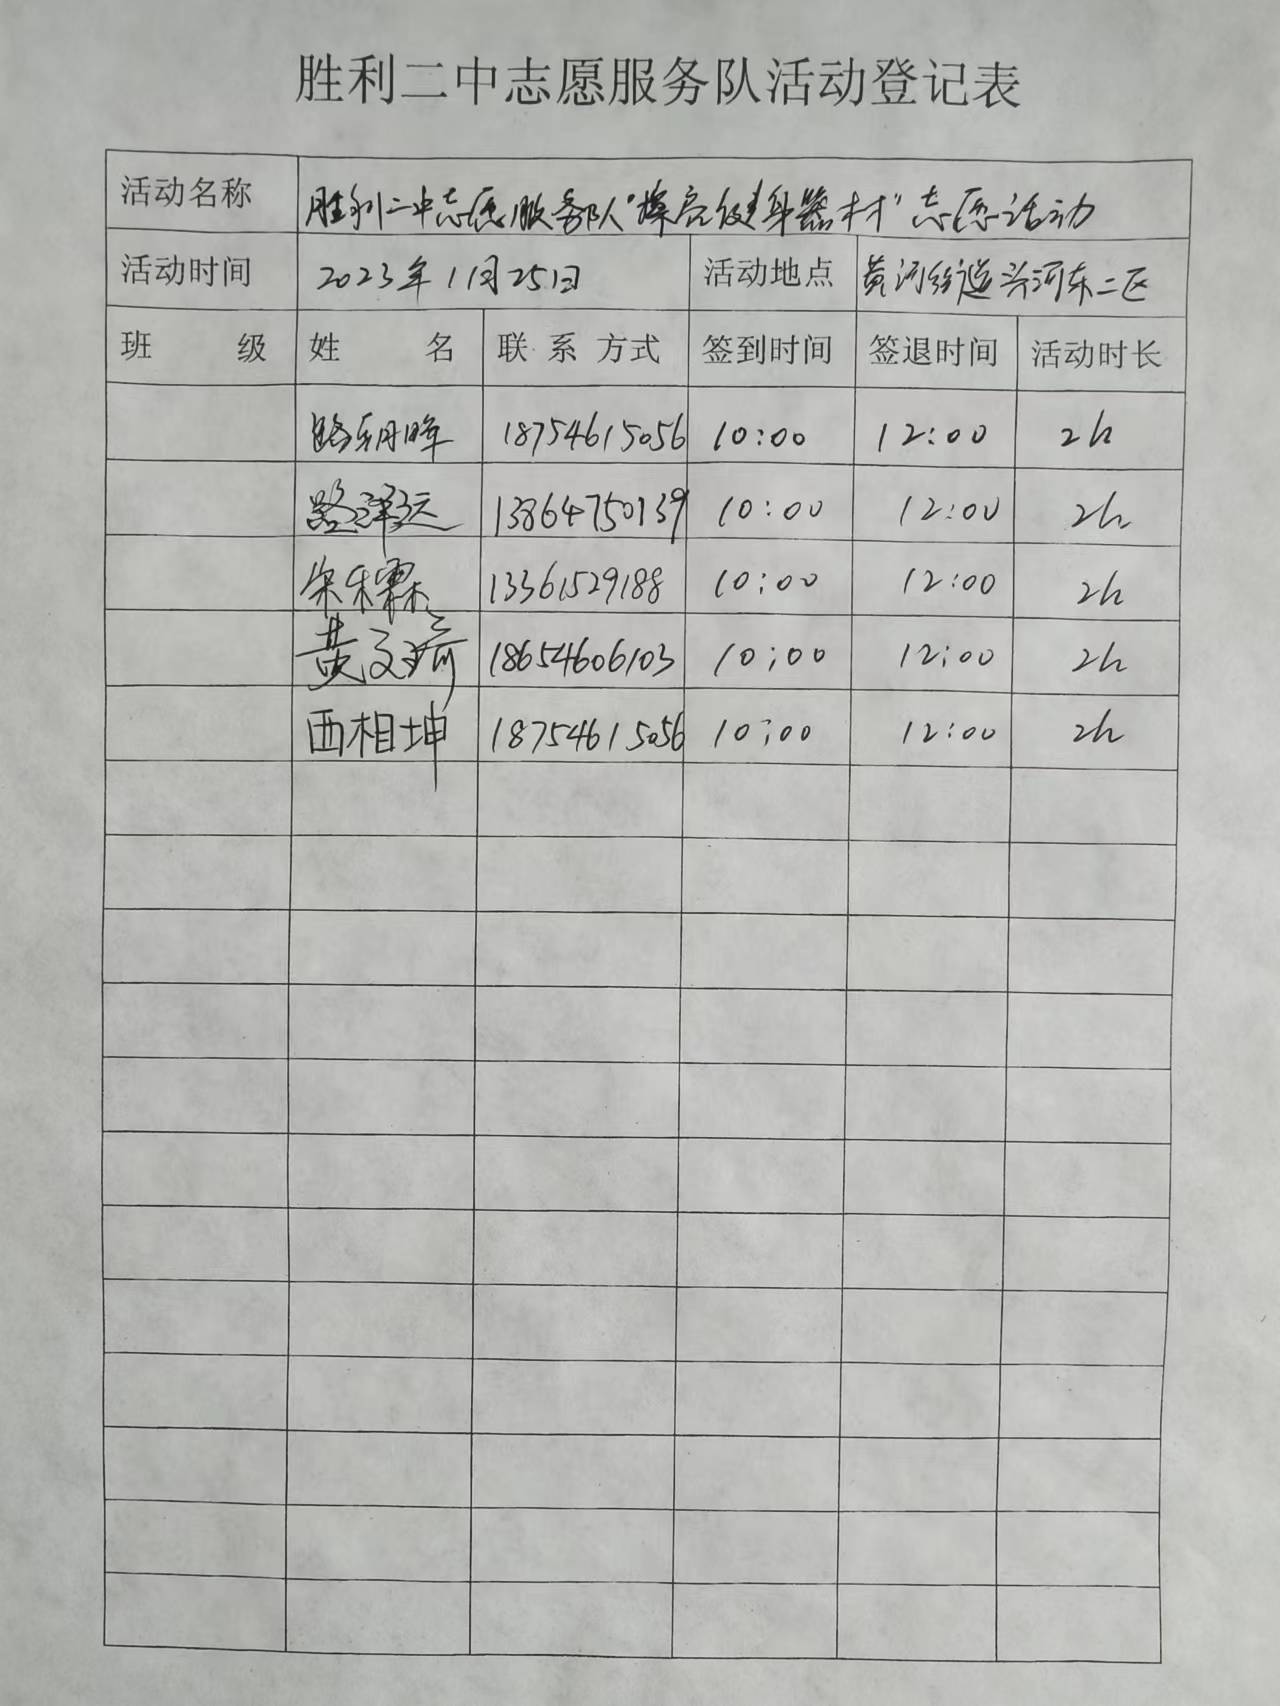 胜利二中志愿服务队活动登记表
活动名称 胜利二中志愿服务队“擦亮健身器材”志愿活动
活动时间 2023年11月25日 活动地点 黄河街道汾河东二区
班 级 姓 名 联系方式 签到时间 签退时间 活动时长
路朝晖 18754615056 10:00 12:00 2h
路泽远 13864750139 10:00 12:00 2h
13361529188 10:00 12:00 2h
黄文 18654606103 10:00 12:00 2h
西相坤 18754615056 10:00 12:00 2h